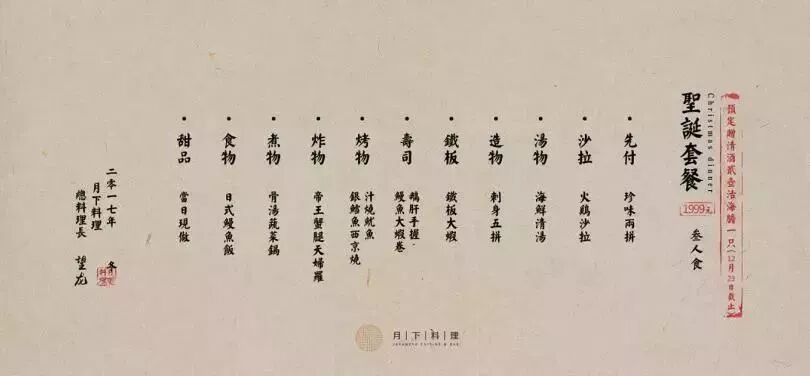 預定贈清酒貳壺活海膽一只(12月23日截止)
聖誕套餐
Christmas dinner
1999元
叁人食
·先付 珍味兩拼
·沙拉 火鷄沙拉
·湯物 海鮮清湯
·造物 刺身五拼
·鐵板 鐵板大蝦
·壽司 鵝肝手握·
鰻魚大蝦卷
·烤物 汁燒魷魚
銀鱈魚西京燒
·炸物 帝王蟹腿天婦羅
·煮物 骨湯蔬菜鍋
·食物 日式鰻魚飯
·甜品 當日現做
二零一七年 冬
月下料理
總料理長 望龙
月|下|料|理
JAPANESE CUISINE & BAR